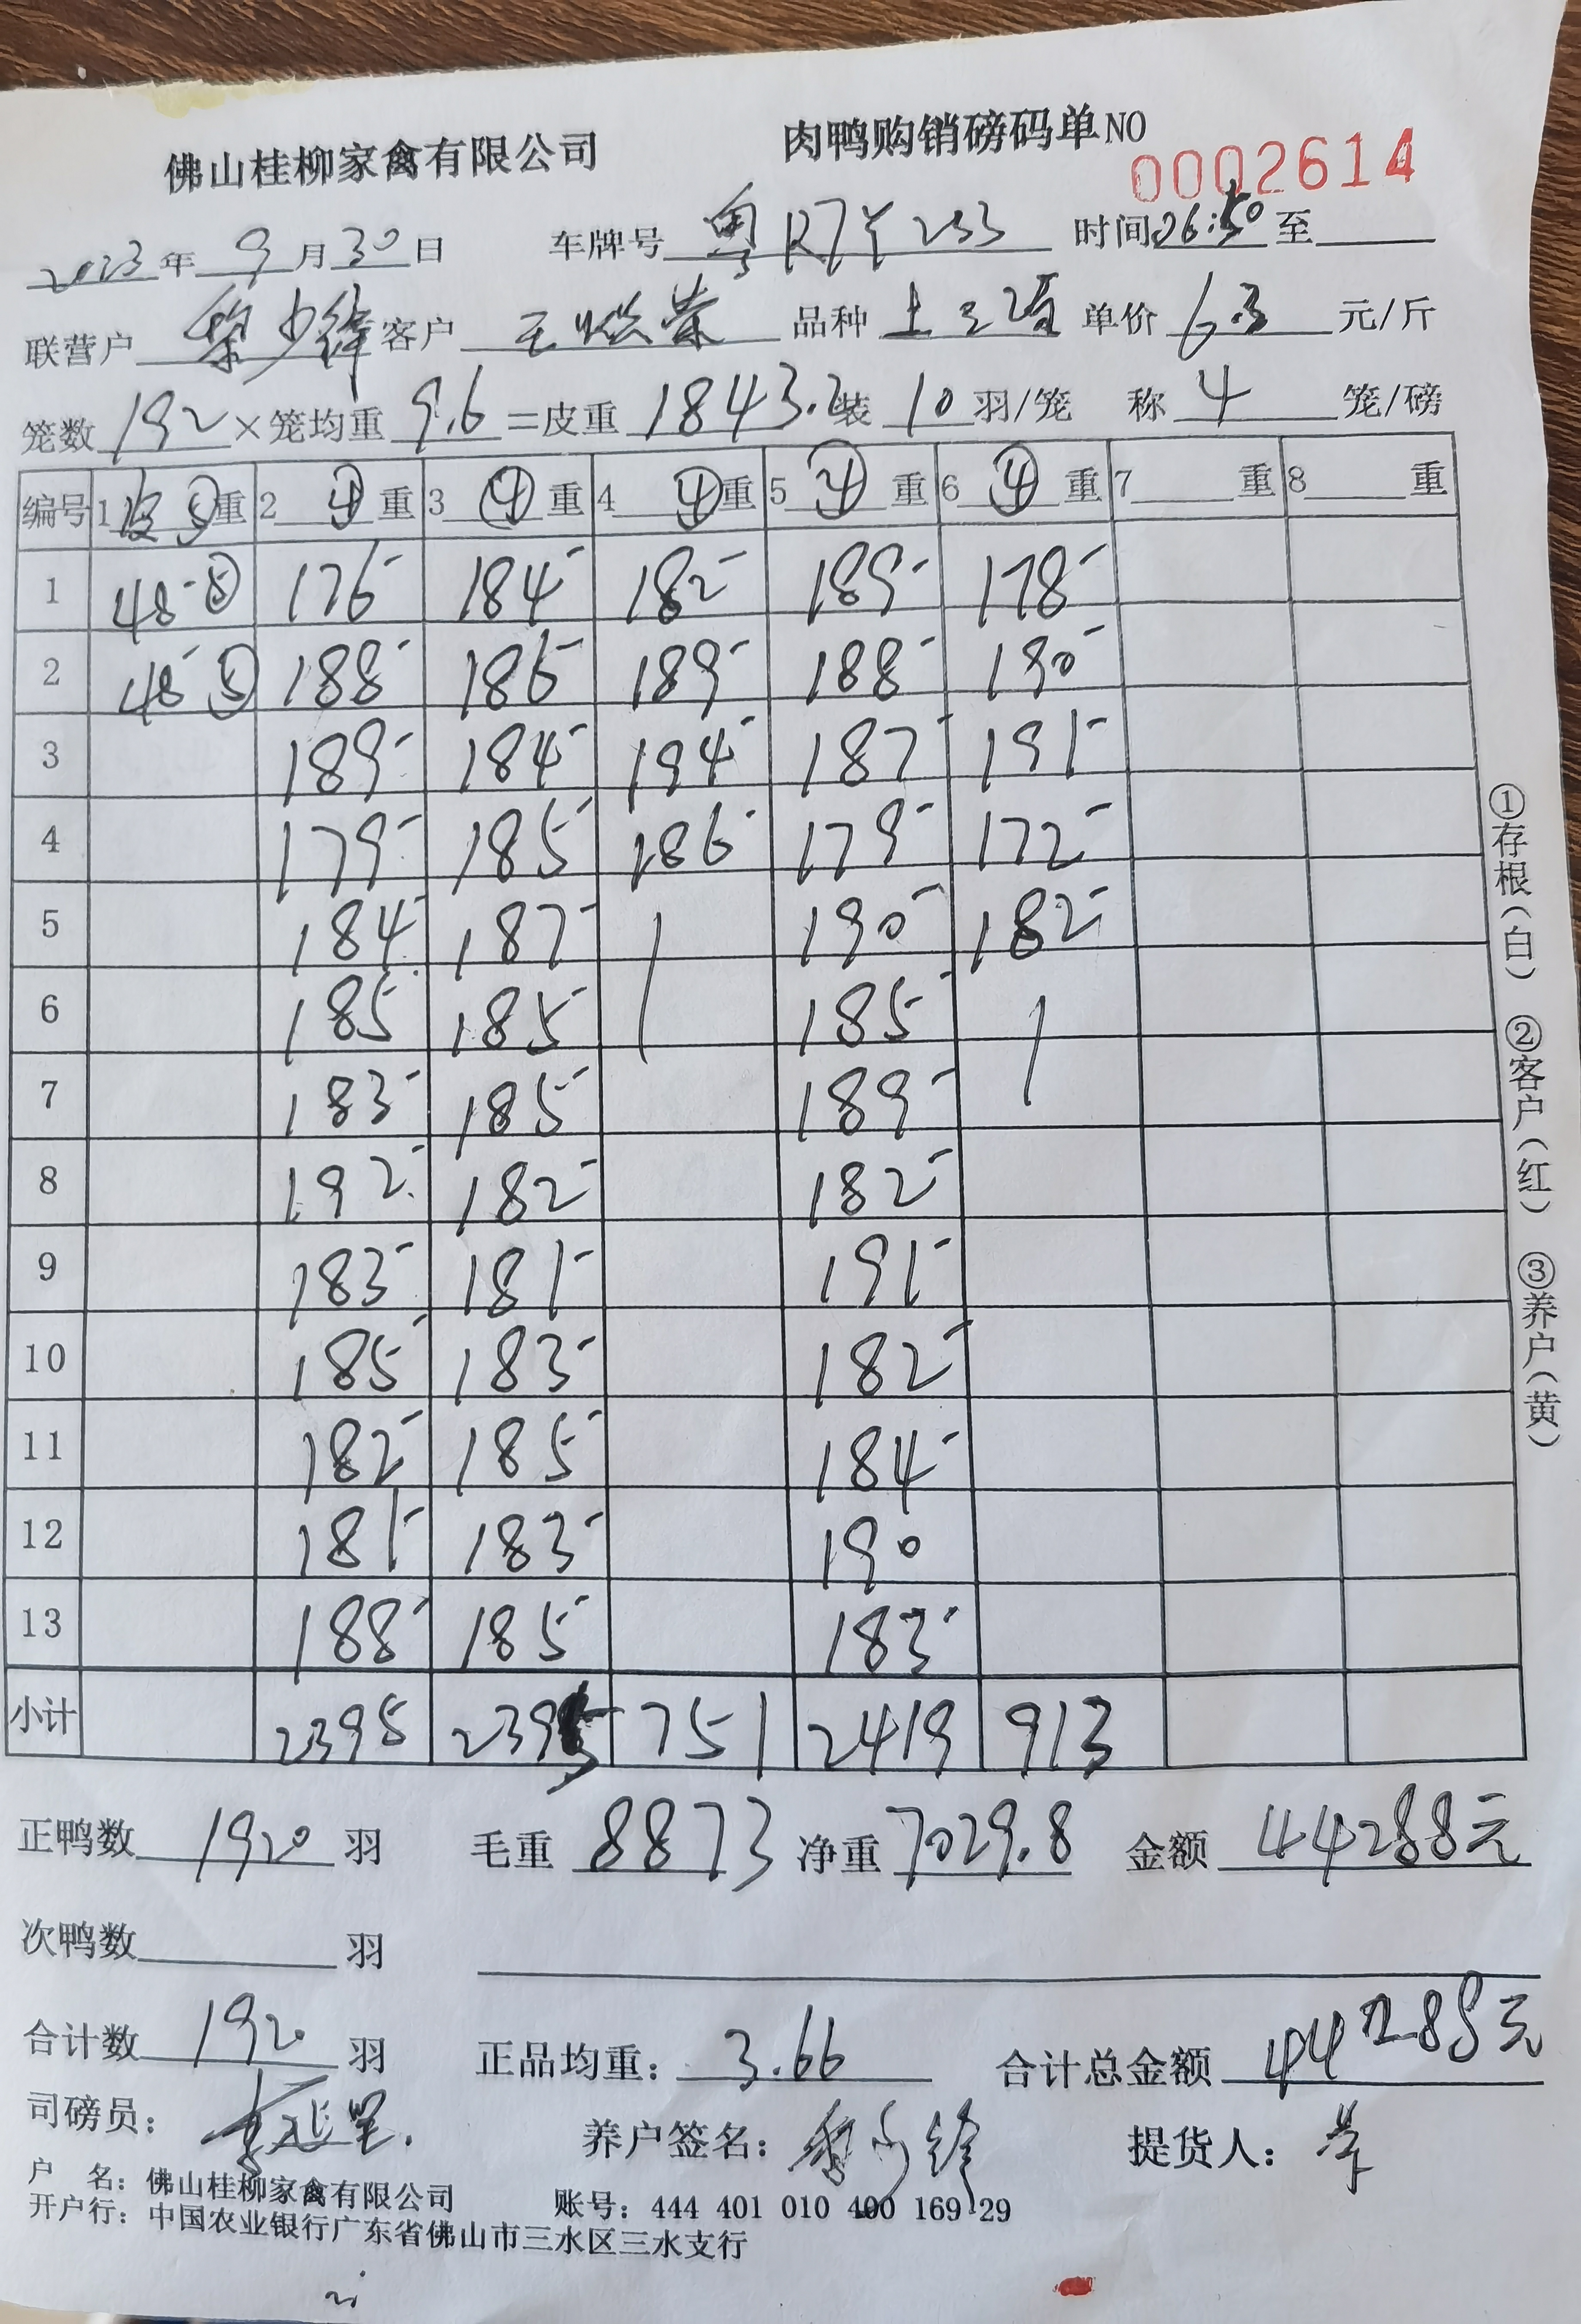 佛山桂柳家禽有限公司 肉鸭购销磅码单NO 0002614
2023年 9月30日 车牌号 粤R7Y233 时间06:50至
联营户 黎少锋 客户 品种 单价 6.3 元/斤
笼数 192 ×笼均重 9.6 =皮重 1843.2 装 10 羽/笼 称 4 笼/磅
编号 1 皮⑤重 2 ④重 3 ④重 4 ④重 5 ④重 6 ④重 7 重 8 重
1 48-⑤ 176- 184- 182- 189- 178-
2 48-⑤ 188- 186- 189- 188- 190-
3 189- 184- 194- 187- 191-
4 179- 185- 186- 179- 172-
5 184- 187- 190- 182-
6 185- 185- 185-
7 183- 185- 189-
8 192- 182- 182-
9 183- 181- 191-
10 185- 183- 182-
11 182- 185- 184-
12 181- 183- 190
13 188- 185- 183-
小计 2395 2395 751 2419 913
正鸭数 1920 羽 毛重 8873 净重 7029.8 金额 44288元
次鸭数 羽
合计数 1920 羽 正品均重: 3.66 合计总金额 44288元
司磅员: 养户签名: 黎少锋 提货人: 荣
户 名: 佛山桂柳家禽有限公司 账号: 444 401 010 400 169 29
开户行: 中国农业银行广东省佛山市三水区三水支行
①存根(白) ②客户(红) ③养户(黄)